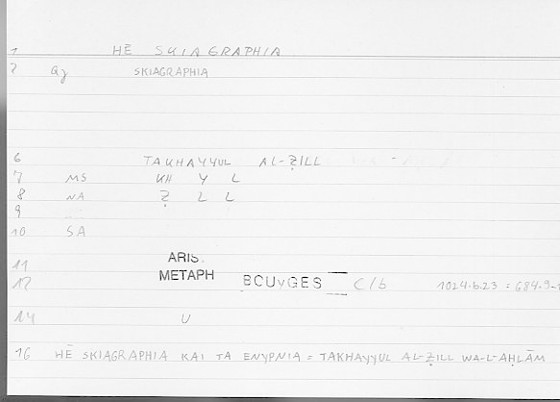 1 HĒ SKIAGRAPHIA
2 Qz SKIAGRAPHIA
6 TAKHAYYUL AL-ẒILL
7 MS KH Y L
8 NA Ẓ L L
9
10 SA
11 ARIS.
12 METAPH BCUvGES C/b 1024.b.23 = 684.9-
14 U
16 HĒ SKIAGRAPHIA KAI TA ENYPNIA = TAKHAYYUL AL-ẒILL WA-L-AḤLĀM